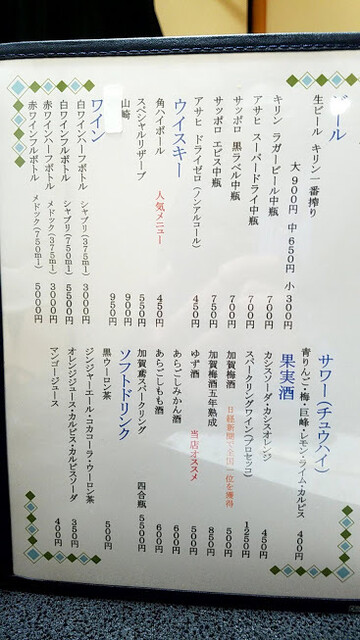 ビール
生ビール キリン一番搾り
大 900円 中 650円 小 300円
キリン ラガービール中瓶 700円
アサヒ スーパードライ中瓶 700円
サッポロ 黒ラベル中瓶 700円
サッポロ エビス中瓶 750円
アサヒ ドライゼロ(ノンアルコール) 450円
ウイスキー
角ハイボール 人気メニュー 450円
スペシャルリザーブ 550円
900円
山崎 950円
ワイン
白ワインハーフボトル シャブリ(375ml) 3000円
白ワインフルボトル シャブリ(750ml) 5500円
赤ワインハーフボトル メドック(375ml) 3000円
赤ワインフルボトル メドック(750ml) 5000円
サワー(チュウハイ)
青りんご・梅・巨峰・レモン・ライム・カルピス 400円
果実酒
カシスソーダ・カシスオレンジ 450円
スパークリングワイン(プロセッコ) 1250円
加賀梅酒 日経新聞で全国一位を獲得 500円
加賀梅酒五年熟成 850円
ゆず酒 当店オススメ 500円
あらごしみかん酒 600円
あらごしもも酒 600円
加賀鳶スパークリング 四合瓶 5500円
ソフトドリンク
黒ウーロン茶 500円
ジンジャーエール・コカコーラ・ウーロン茶
オレンジジュース・カルピス・カルピスソーダ 350円
マンゴージュース 400円